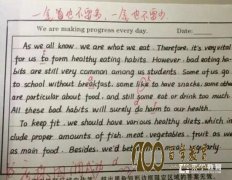 一个也不需多，一个也不需少
We are making progress every day. Date:
As we all know, we are what we eat. Therefore, it's very vital
for us to form healthy eating habits. However, bad eating ha-
bits are still very common among us students. Some of us go
to school without breakfast, some like to have snacks, some others
are particular about food, and still some eat or drink too much.
All these bad habits will surely do harm to our health.
To keep fit, we should have various healthy diets, which in-
clude proper amounts of fish, meat, vegetables, fruit as we
as main food. Besides, we'd be
regularly.